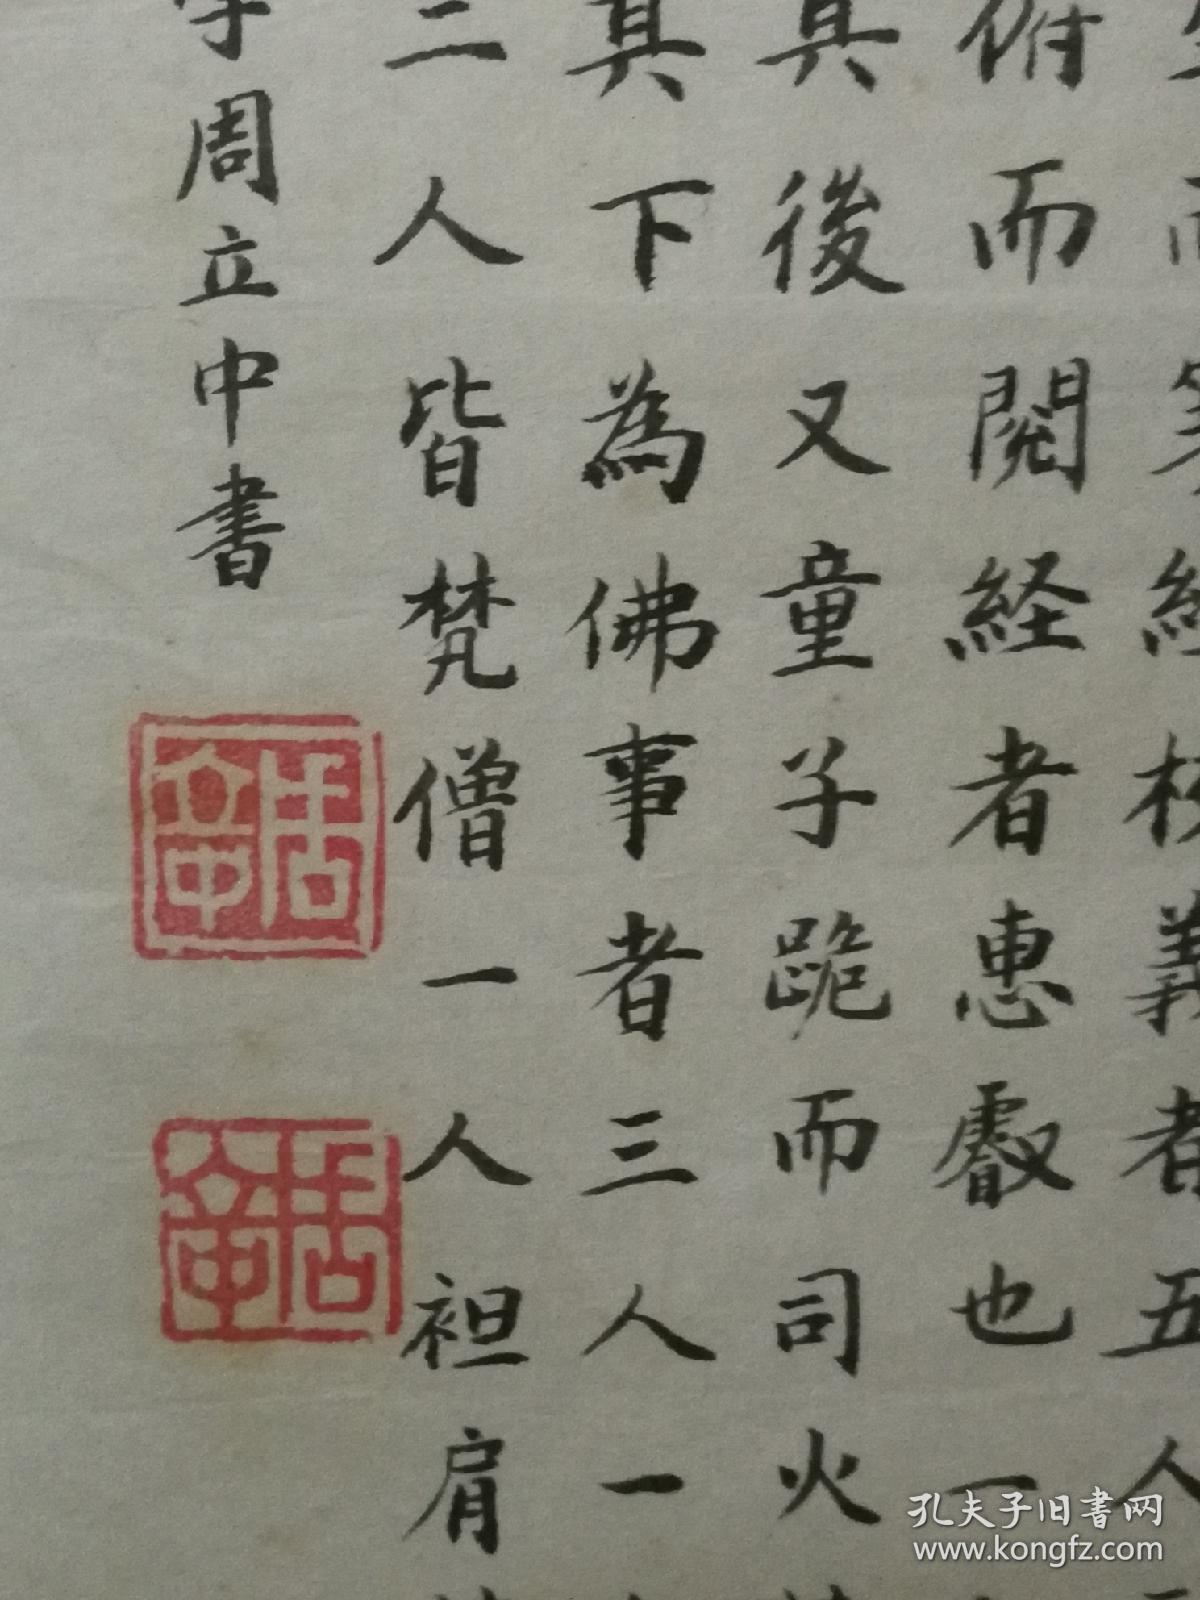 而 義者五人
俯而閱経者惠叡也一
具後又童子跪而司火
其下為佛事者三人一
二人皆梵僧一人袒肩
周立中書
周立中
周立中
孔夫子旧書网
www.kongfz.com